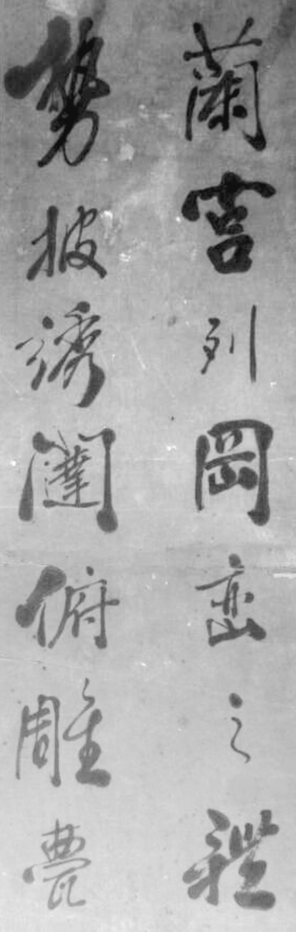 蘭宮列岡峦之體
勢披綉闥俯雕甍